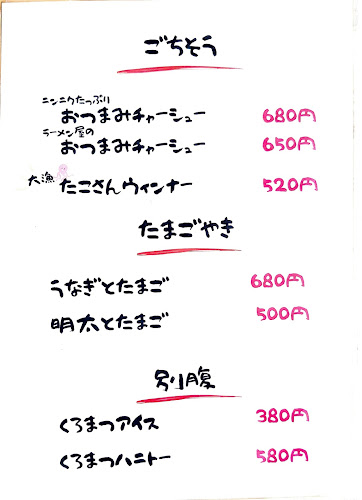 ごちそう
ニンニクたっぷり
おつまみチャーシュー 680円
ラーメン屋の
おつまみチャーシュー 650円
大漁 たこさんウィンナー 520円
たまごやき
うなぎとたまご 680円
明太とたまご 500円
別腹
くろまつアイス 380円
くろまつハニトー 580円